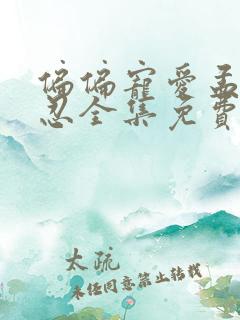 偏偏寵愛孟
忍全集免費
太疏
未经同意禁止转载